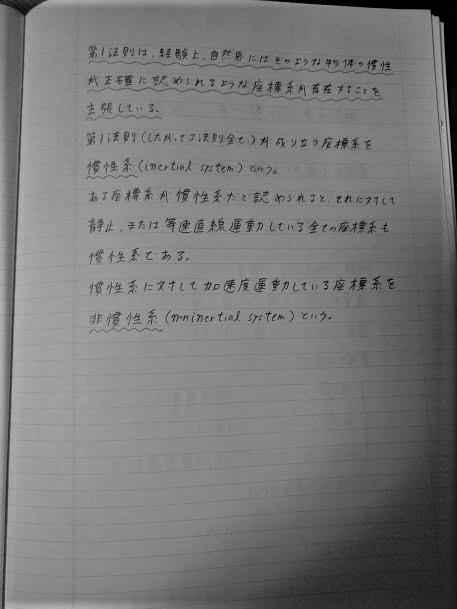 第1法則は、経験上、自然界にはそのような物体の慣性
が正確に認められるような座標系が存在することを
主張している。
第1法則(したがって3法則全て)が成り立つ座標系を
慣性系(inertial system)という。
ある座標系が慣性系だと認められると、それに対して
静止、または等速直線運動している全ての座標系も
慣性系である。
慣性系に対して加速度運動している座標系を
非慣性系(noninertial system)という。